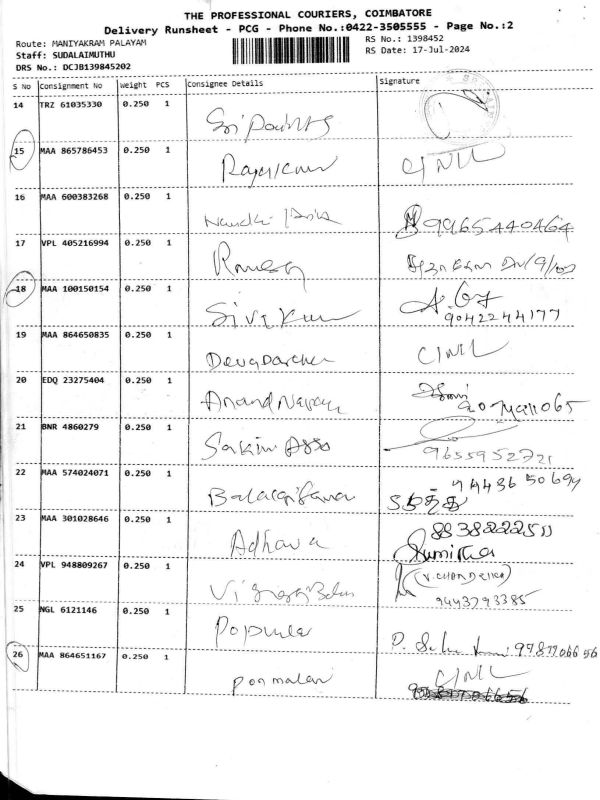 THE PROFESSIONAL COURIERS, COIMBATORE
Delivery Runsheet - PCG - Phone No.:0422-3505555 - Page No.:2
Route: MANIYAKRAM PALAYAM
RS No.: 1398452
Staff: SUDALAIMUTHU
RS Date: 17-Jul-2024
DRS No.: DCJB139845202
S No Consignment No Weight PCS Consignee Details Signature
14 TRZ 61035330 0.250 1
Sri Points
15 MAA 865786453 0.250 1
Rajkumar C/NIL
16 MAA 600383268 0.250 1
9965440464
17 VPL 405216994 0.250 1
Ramesh
18 MAA 100150154 0.250 1
Sivakumar
9042244177
19 MAA 864650835 0.250 1
Devadarshan C/NIL
20 EDQ 23275404 0.250 1
Anand
21 BNR 4860279 0.250 1
Sakin Asso
9655952721
22 MAA 574024071 0.250 1
9443650694
23 MAA 301028646 0.250 1
8838222511
Adhava Sumitha
24 VPL 948809267 0.250 1
9443793385
25 NGL 6121146 0.250 1
Popular
9787706656
26 MAA 864651167 0.250 1
C/NIL
Ponmalar